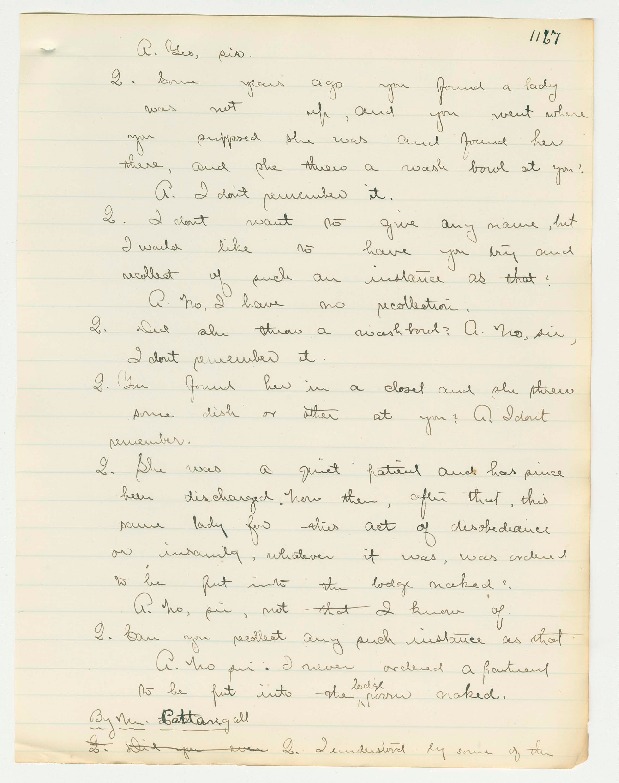 1127
A. Yes, sir.
Q. Some years ago you found a lady
was not up, and you went where
you supposed she was and found her
there, and she threw a wash bowl at you?
A. I dont remember it.
Q. I dont want to give any name, but
I would like to have you try and
recollect of such an instance as that?
A. No, I have no recollection.
Q. Did she throw a washbowl? A. No, sir,
I dont remember it.
Q. You found her in a closet and she threw
some dish or other at you? A. I dont
remember.
Q. She was a quiet patient and has since
been discharged. Now then, after that, this
same lady for this act of disobedience
or insanity, whatever it was, was ordered
to be put into the lodge naked?
A. No, sir, not that I know of.
Q. Can you recollect any such instance as that
A. No sir. I never ordered a patient
to be put into the lodge room naked.
By Mr. Pattangall
Q. Did you ever Q. I understood by some of the